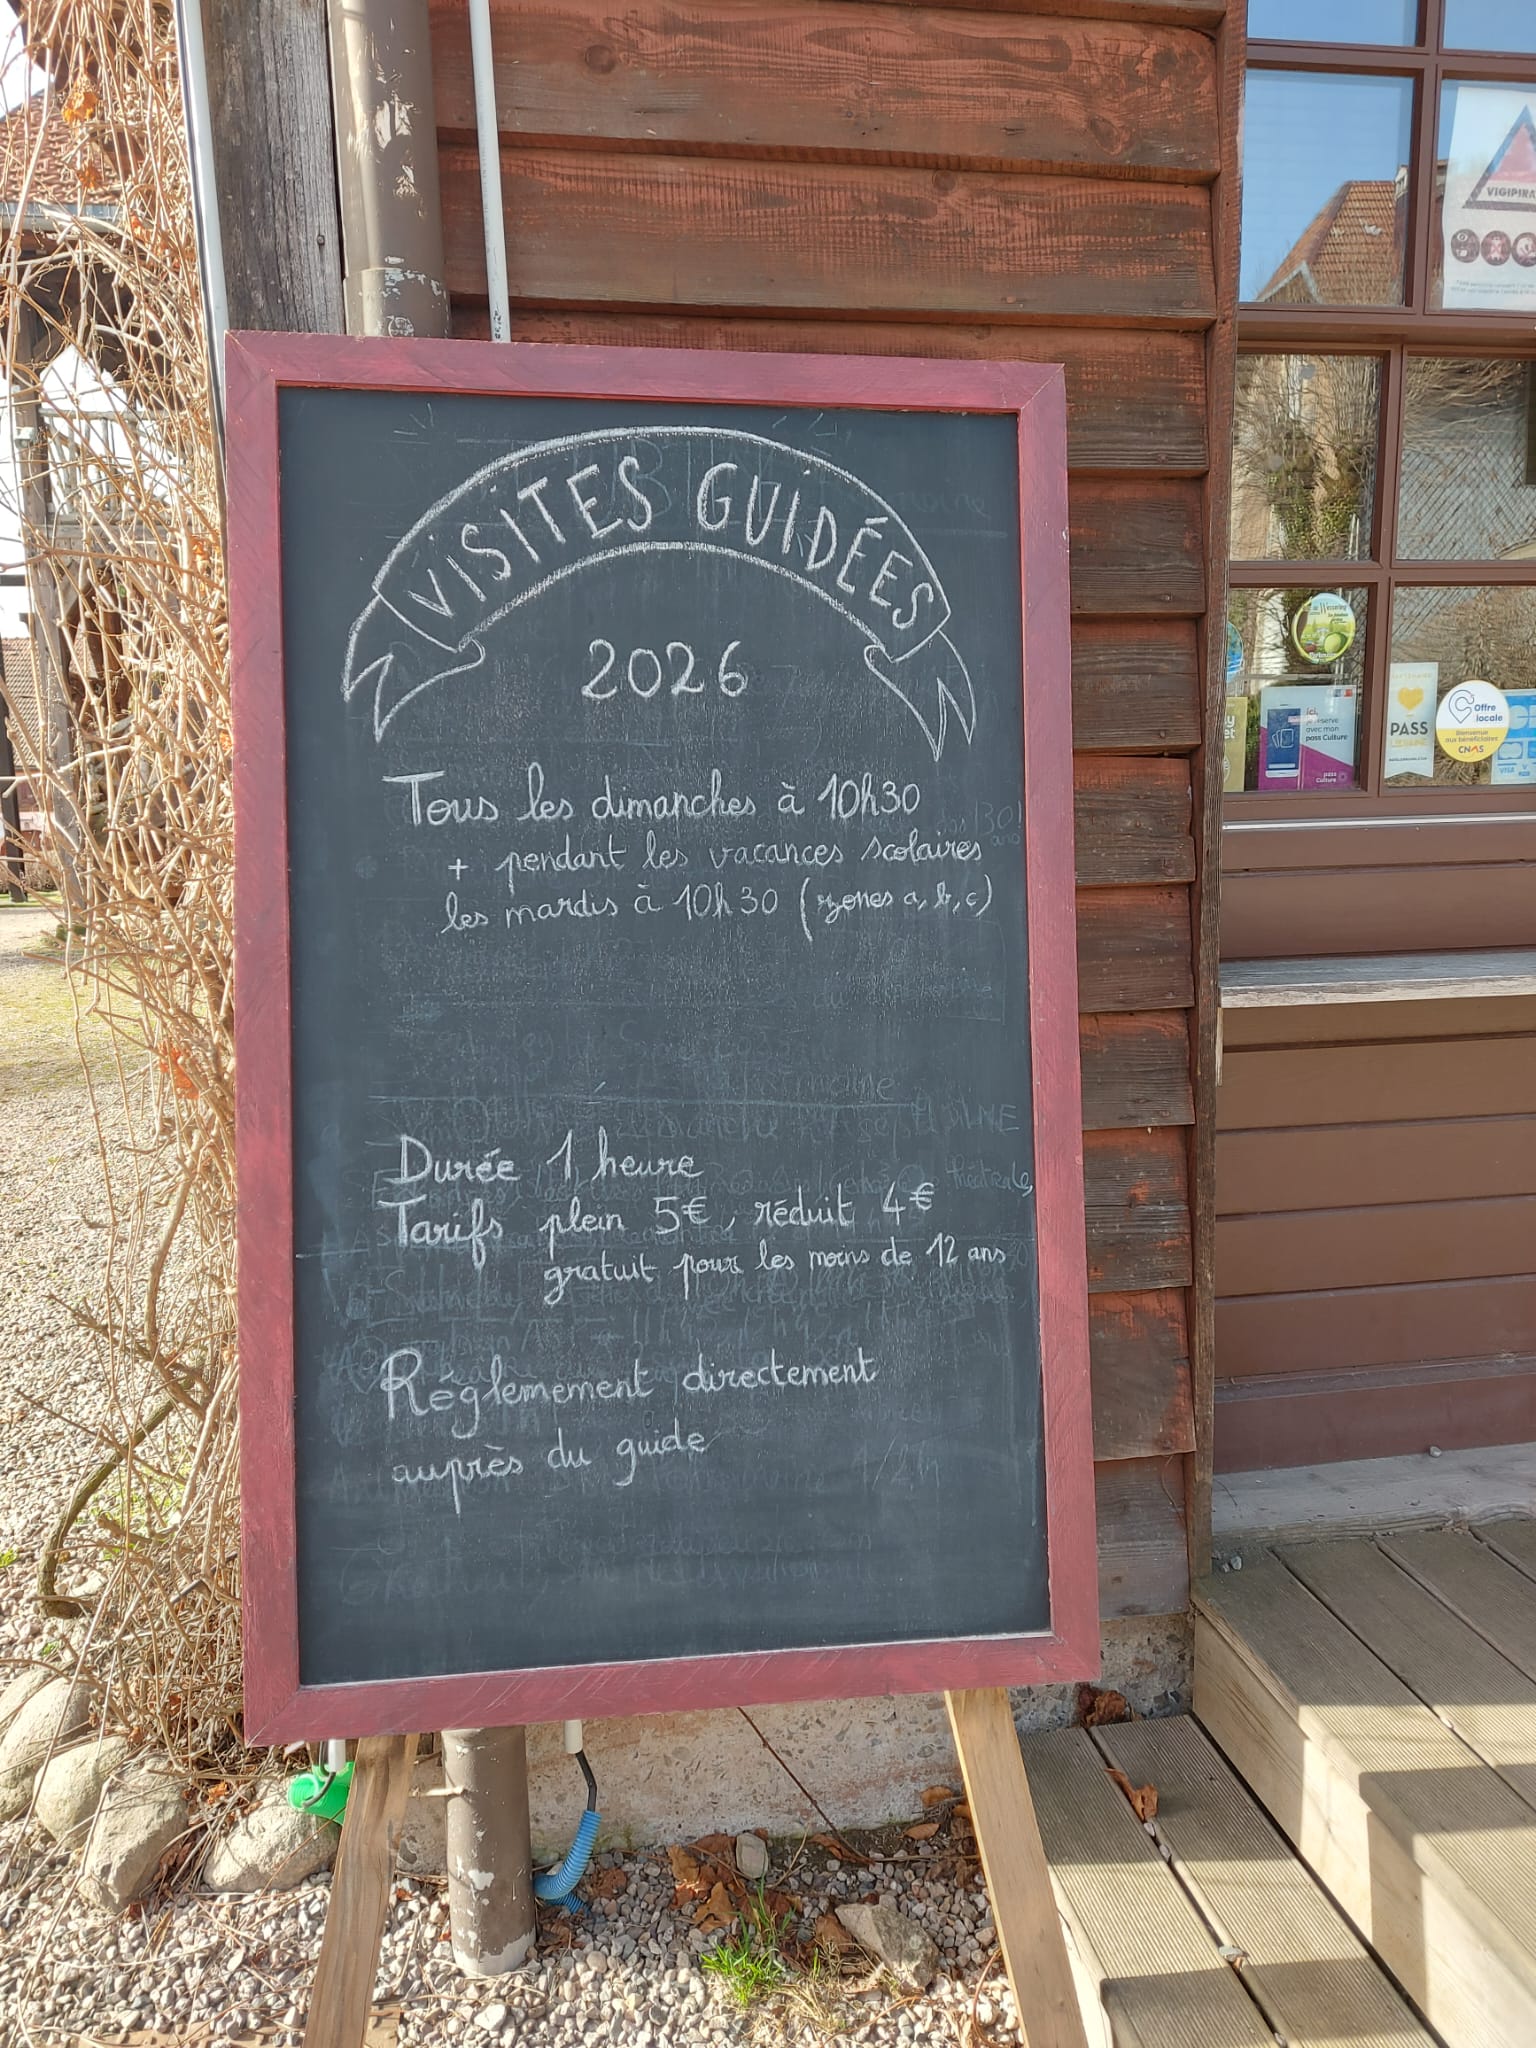 VISITES GUIDÉES
2026
Tous les dimanches à 10h30
+ pendant les vacances scolaires
les mardis à 10h30 (zones a, b, c)
Durée 1 heure
Tarifs plein 5€, réduit 4€
gratuit pour les moins de 12 ans
Reglemement directement
auprès du guide
VIGIPIRA
Wesserling
ici,
je réserve
avec mon
pass Culture
pass
Culture
PASS
Offre
locale
Bienvenue
aux bénéficiaires
CNAS
VISA